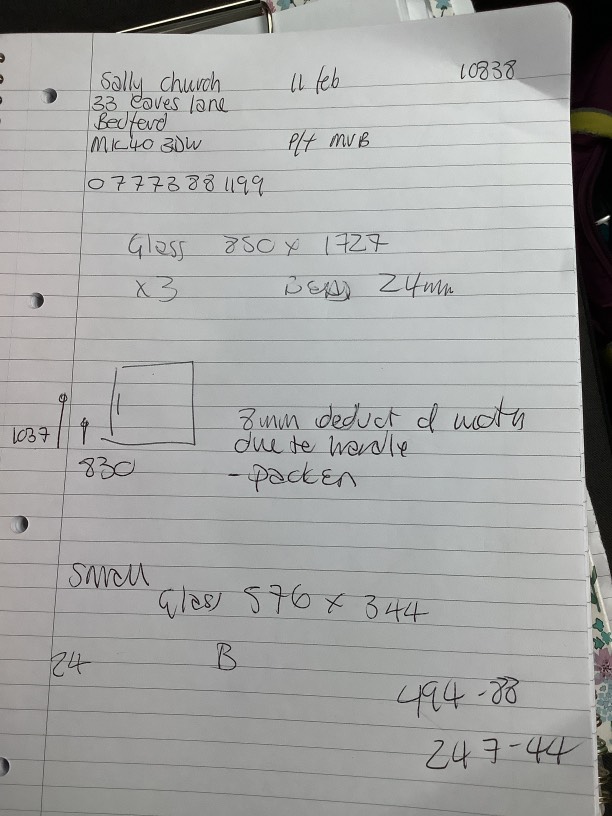 Sally Church 11 feb 10838
33 eaves lane
Bedford
MK40 3DW P/t MVB
07773881199
Glass 850 x 1727
x3 24mm
1037
830
8mm deduct of
due to handle
- packer
Small
Glass 576 x 344
24 B
494-88
247-44